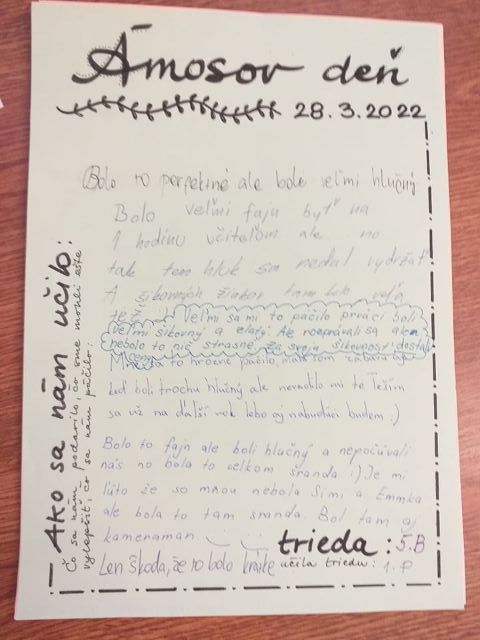 Ámosov deň
28.3.2022
Ako sa nám učilo:
Čo sa nám podarilo, čo sme mohli ešte
vylepšiť, čo sa nám páčilo:
Bolo to perfektné ale bolé veľmi hlučný
Bolo veľmi fajn byť na
1 hodinu učiteľom ale no
tak ten hluk sa nedal vydržať
A šikovných žiakov tam bolo veľa
Veľmi sa mi to páčilo prváci boli
veľmi šikovný a zlatý. Ale rozprávali sa ale
nebolo to nič strašné. Za svoju šikovnosť dostali
to hrozne páčilo,
keď boli trochu hlučný ale nevadilo mi to Teším
sa už na ďalší rok lebo aj nabudúci budem :)
Bolo to fajn ale boli hlučný a nepočúvali
nás no bola to celkom sranda :) Je mi
ľúto že so mnou nebola Simi a Emmka
ale bola to tam sranda. Bol tam aj
kameraman.
Len škoda, že to bolo krátke
trieda: 5.B
učila triedu: 1.